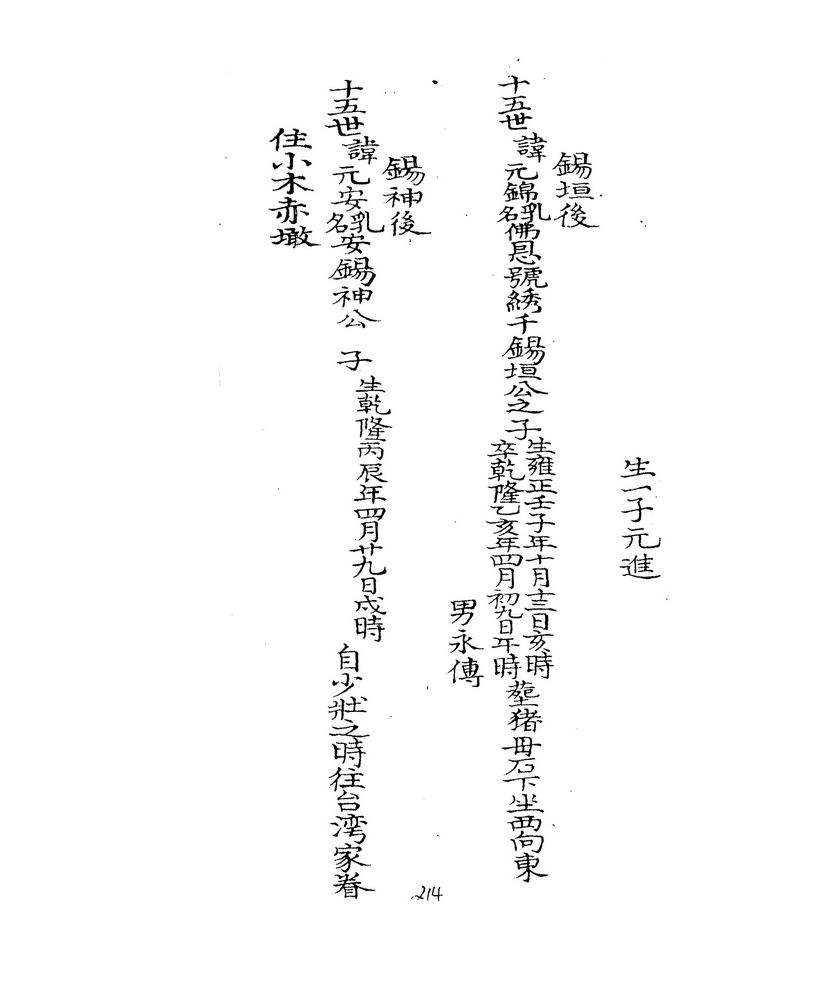 生一子元進
錫垣後
十五世諱元錦乳名佛恩號綉千錫垣公之子
生雍正壬子年十月十三日亥時
卒乾隆乙亥年四月初九日午時
塟猪母石下坐西向東
男永傳
錫神後
十五世諱元安乳名安錫神公子
生乾隆丙辰年四月廿九日戌時
自少壯之時往台湾家眷
住小木赤墩
214